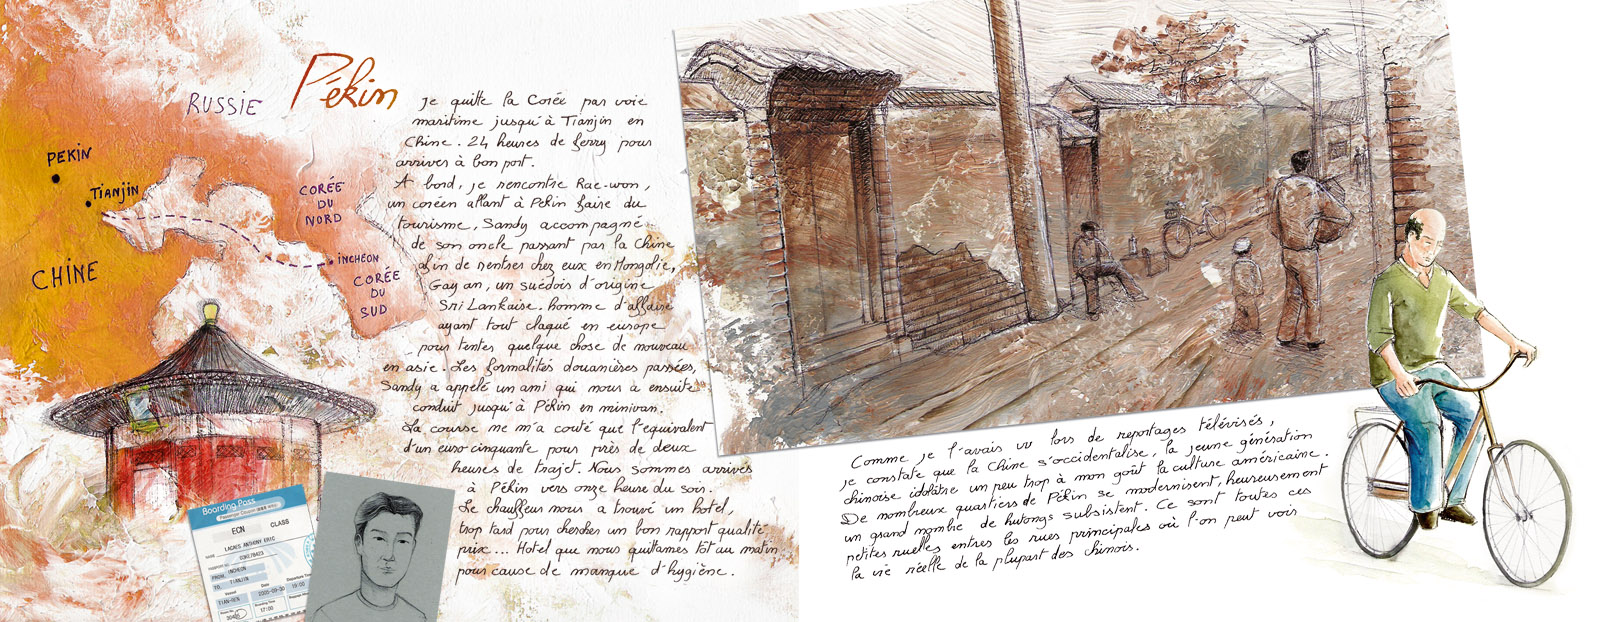 RUSSIE
Pékin
PEKIN
TIANJIN
CHINE
CORÉE
DU
NORD
INCHÉON
CORÉE
DU
SUD
Je quitte la Corée par voie
maritime jusqu'à Tianjin en
Chine. 24 heures de ferry pour
arriver à bon port.
A bord, je rencontre Rae-won,
un coréen allant à Pékin faire du
tourisme, Sandy accompagné
de son oncle passant par la Chine
afin de rentrer chez eux en Mongolie,
Gayan, un suédois d'origine
Sri Lankaise. homme d'affaire
ayant tout claqué en europe
pour tenter quelque chose de nouveau
en asie. Les formalités douanières passées,
Sandy a appelé un ami qui nous a ensuite
conduit jusqu'à Pékin en minivan.
La course ne m'a couté que l'equivalent
d'un euro-cinquante pour près de deux
heures de trajet. Nous sommes arrivés
à Pékin vers onze heure du soir.
Le chauffeur nous a trouvé un hotel,
trop tard pour chercher un bon rapport qualité
prix... Hotel que nous quittames tôt au matin
pour cause de manque d'hygiène.
Boarding Pass
ECN CLASS
NAME LAGNES ANTHONY ERIC
03KE78423
FROM INCHEON
TO TIANJIN
Vessel Date Departure Time
TIAN-REN 2005-09-30 19:00
Room No Boarding Time
304 17:00
Comme je l'avais vu lors de reportages télévisés,
je constate que la Chine s'occidentalise, la jeune génération
chinoise idolâtre un peu trop à mon goût la culture américaine.
De nombreux quartiers de Pékin se modernisent, heureusement
un grand nombre de hutongs subsistent. Ce sont toutes ces
petites ruelles entres les rues principales où l'on peut voir
la vie réelle de la plupart des chinois.